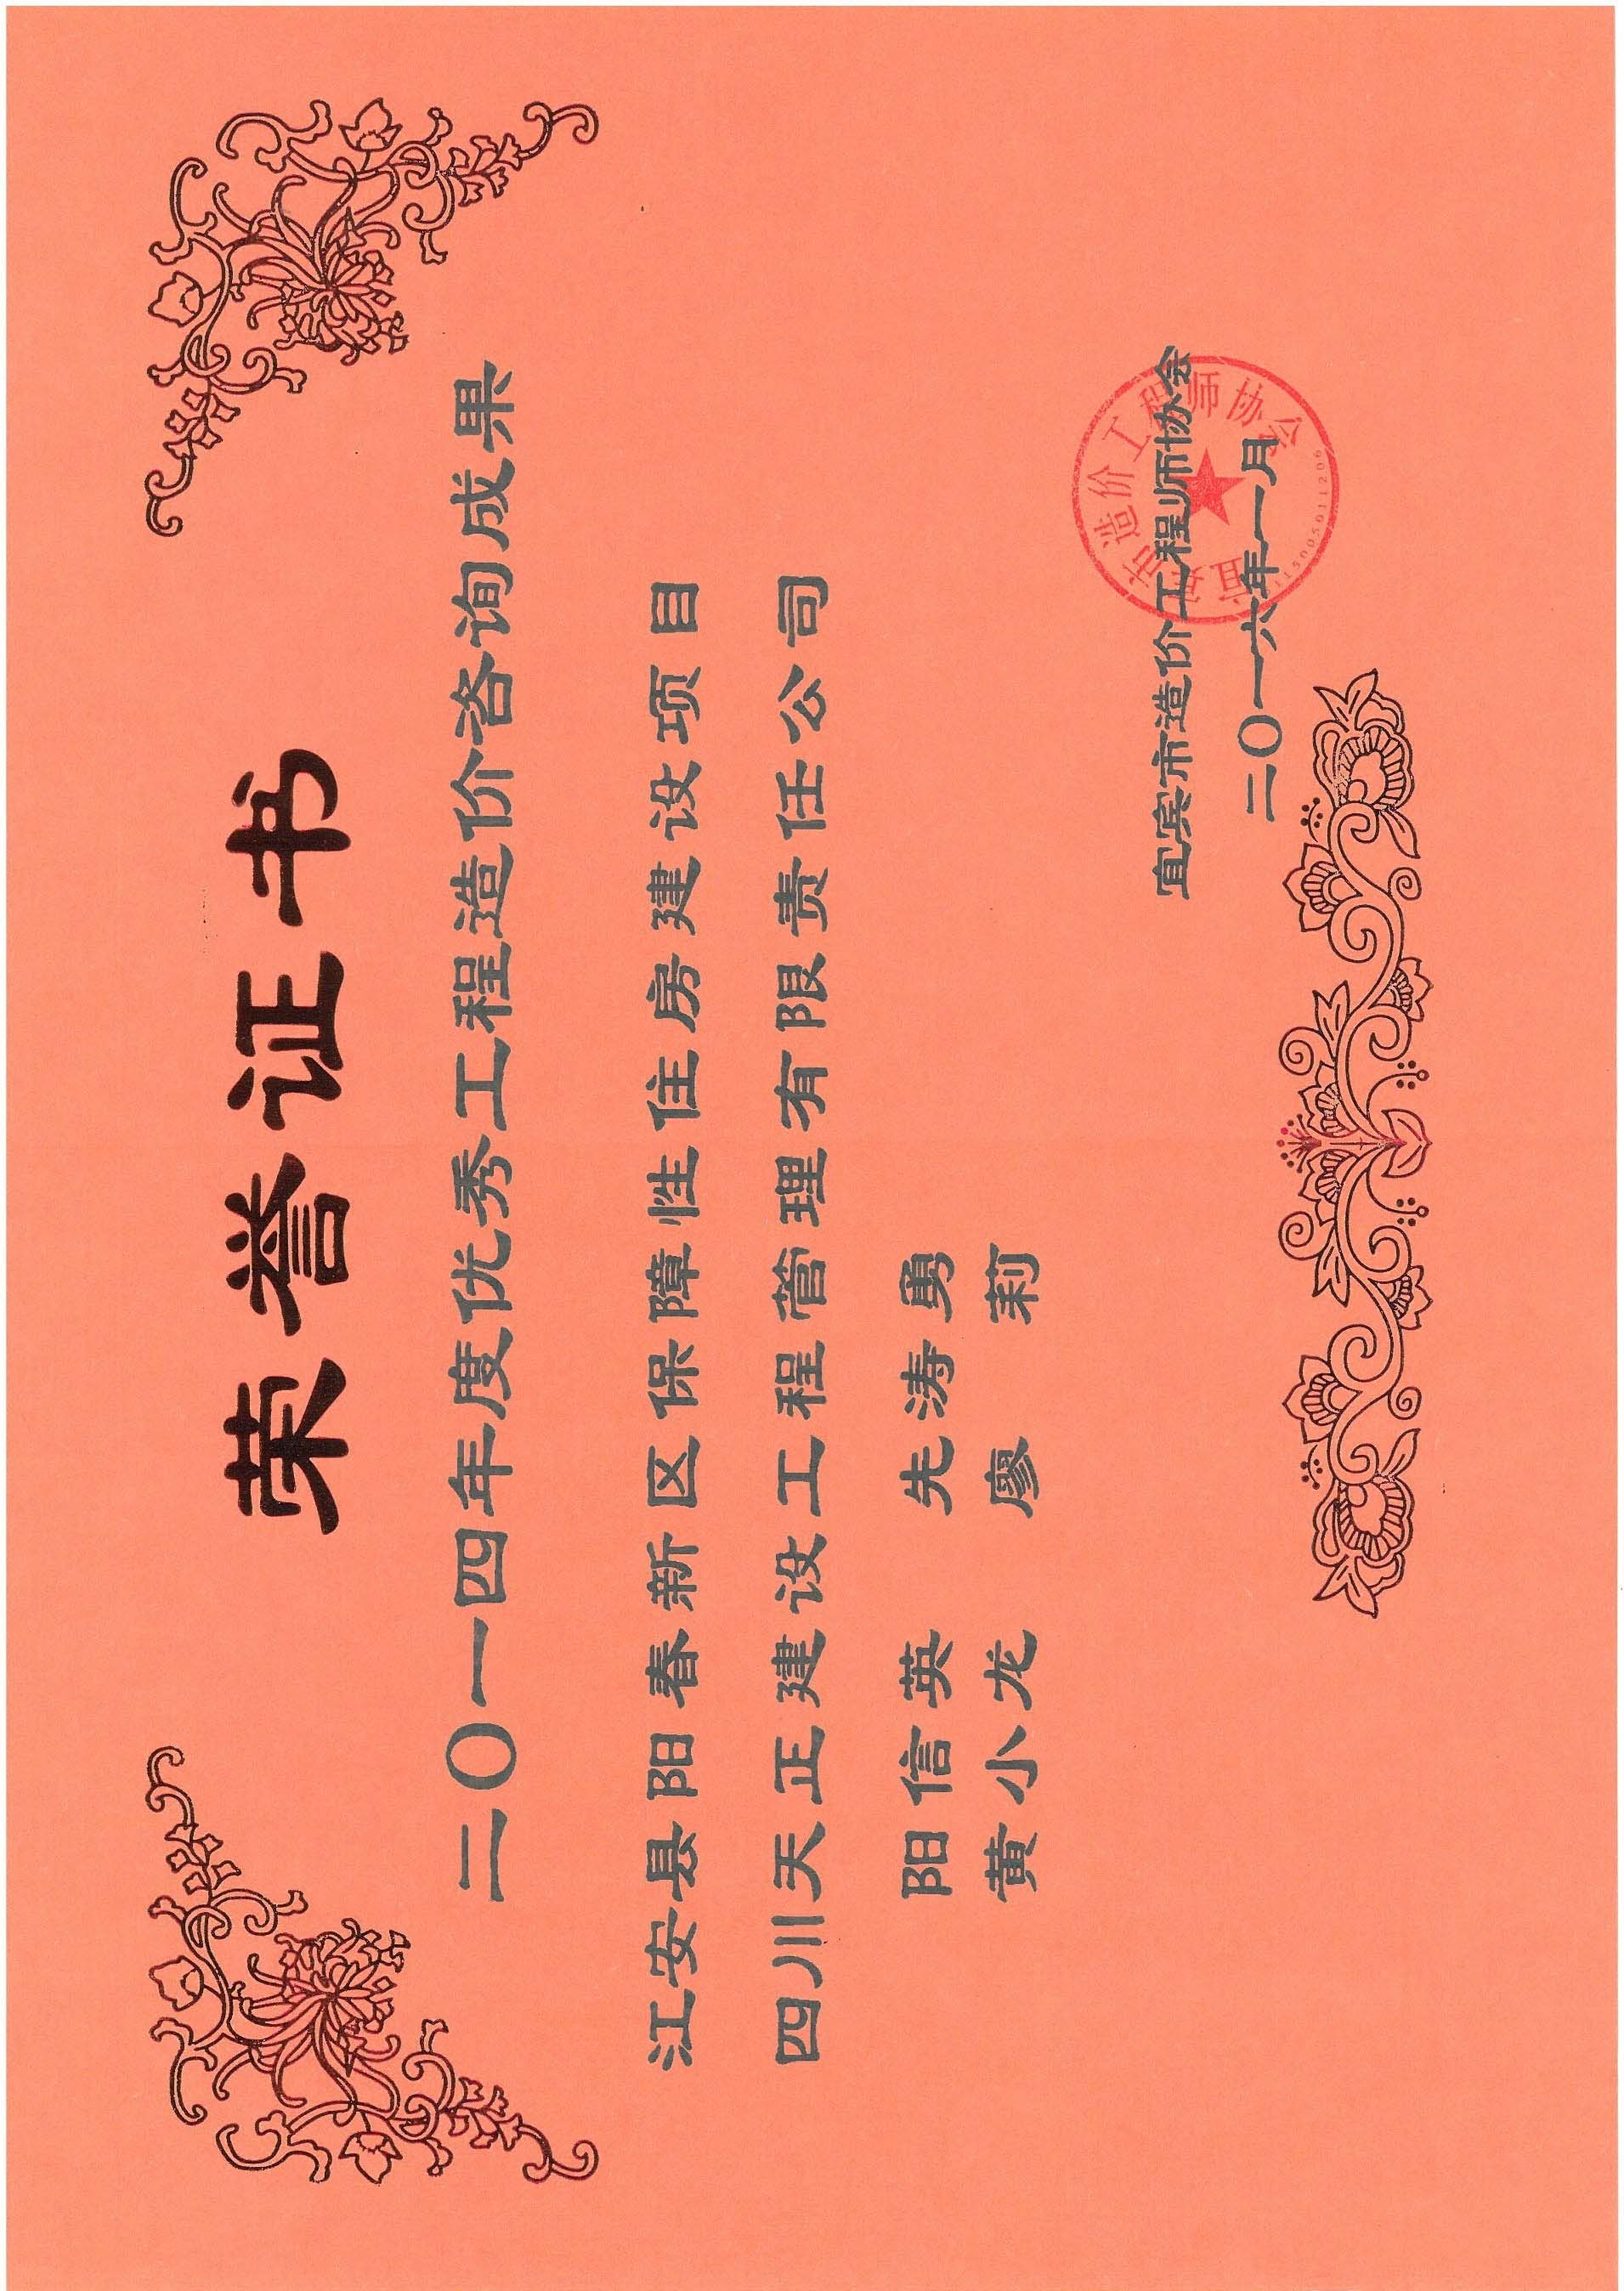 荣誉证书
二〇一四年度优秀工程造价咨询成果
江安县阳春新区保障性住房建设项目
四川天正建设工程管理有限责任公司
阳信英 先涛勇
黄小龙 廖莉
宜宾市造价工程师协会
二〇一六年一月
宜宾市造价工程师协会